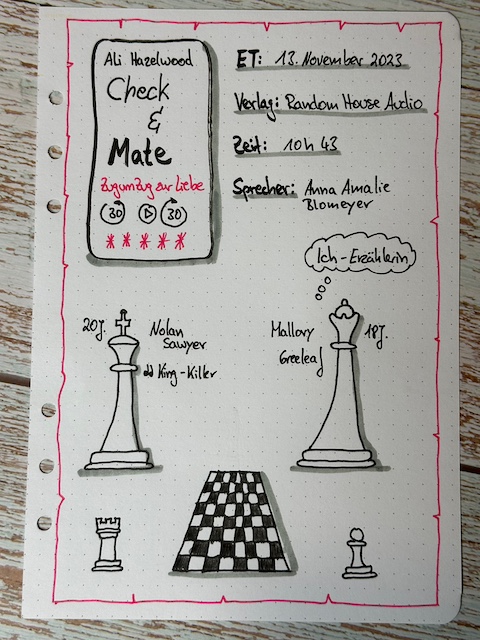 Ali Hazelwood
Check
&
Mate
Zug um Zug zur Liebe
30 30
ET: 13. November 2023
Verlag: Random House Audio
Zeit: 10h 43
Sprecher: Anna Amalie
Blomeyer
Ich-Erzählerin
20J.
Nolan
Sawyer
King-Killer
Mallory
Greeleaf
18J.